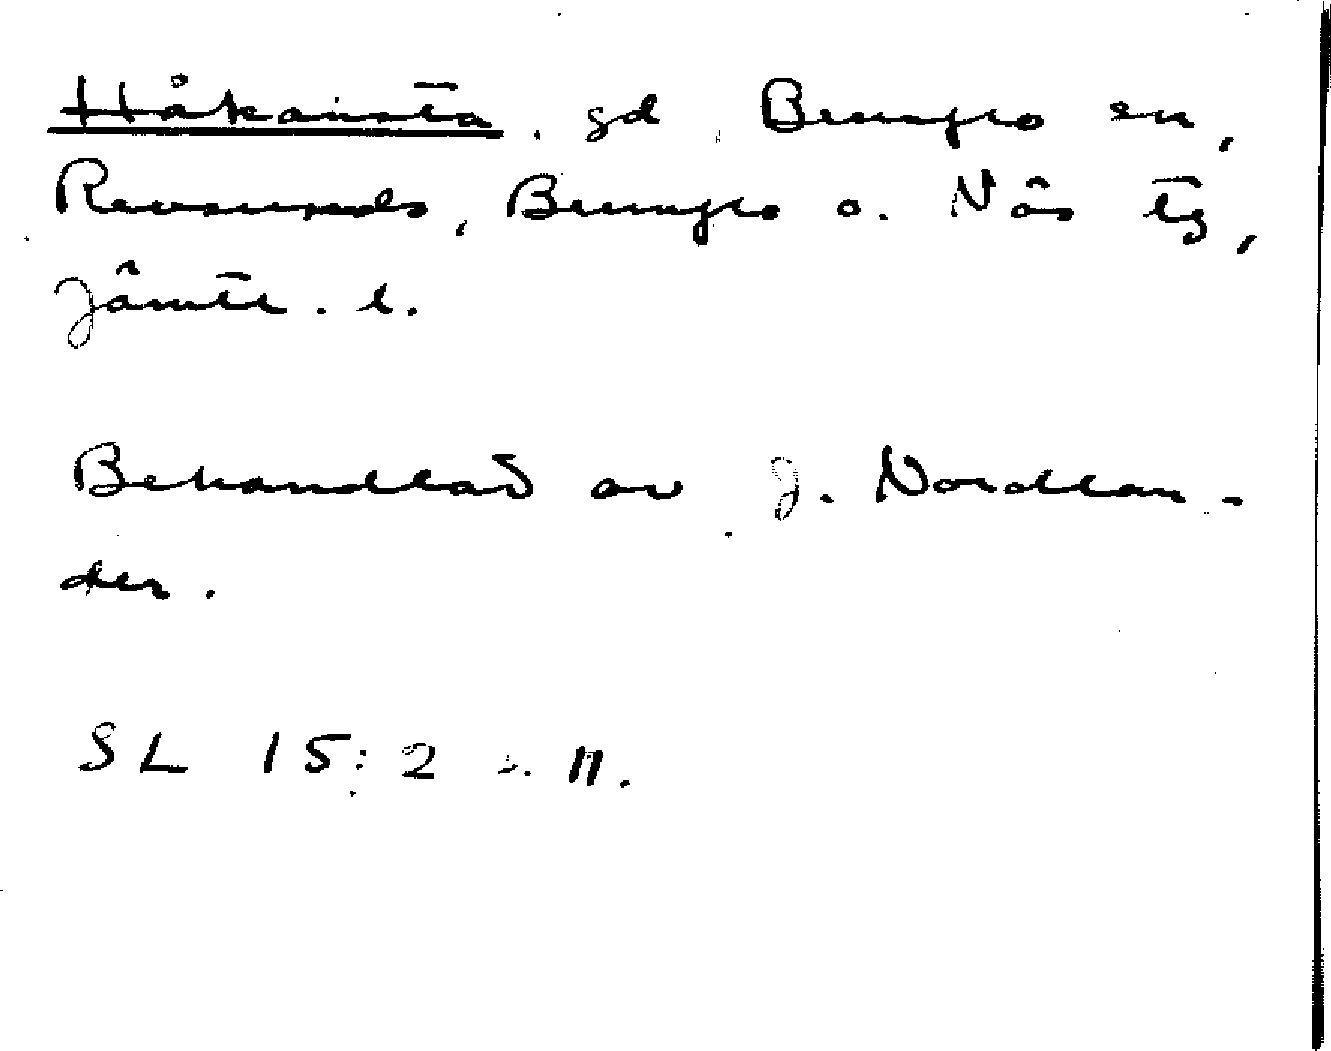 Håkansta, gd, Brunflo sn,
Revsunds, Brunflo o. Näs tg,
Jämtl. l.
Behandlad av J. Nordlan-
der.
SL 15:2 s. 11.